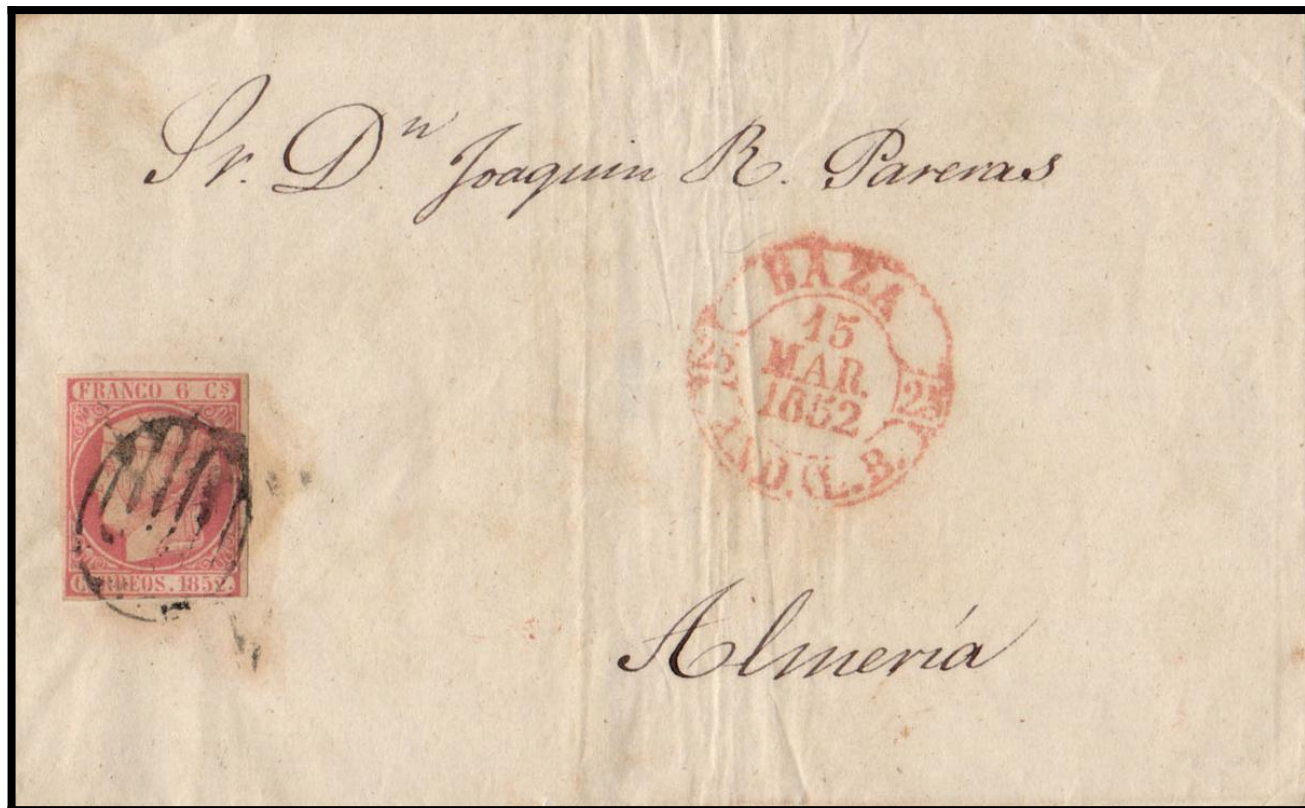 Sr. Dn. Joaquin R. Pareras
BAZA
15
MAR.
1852
25 25
AND. B.
FRANCO 6 Cs
CORREOS. 1852.
Almería